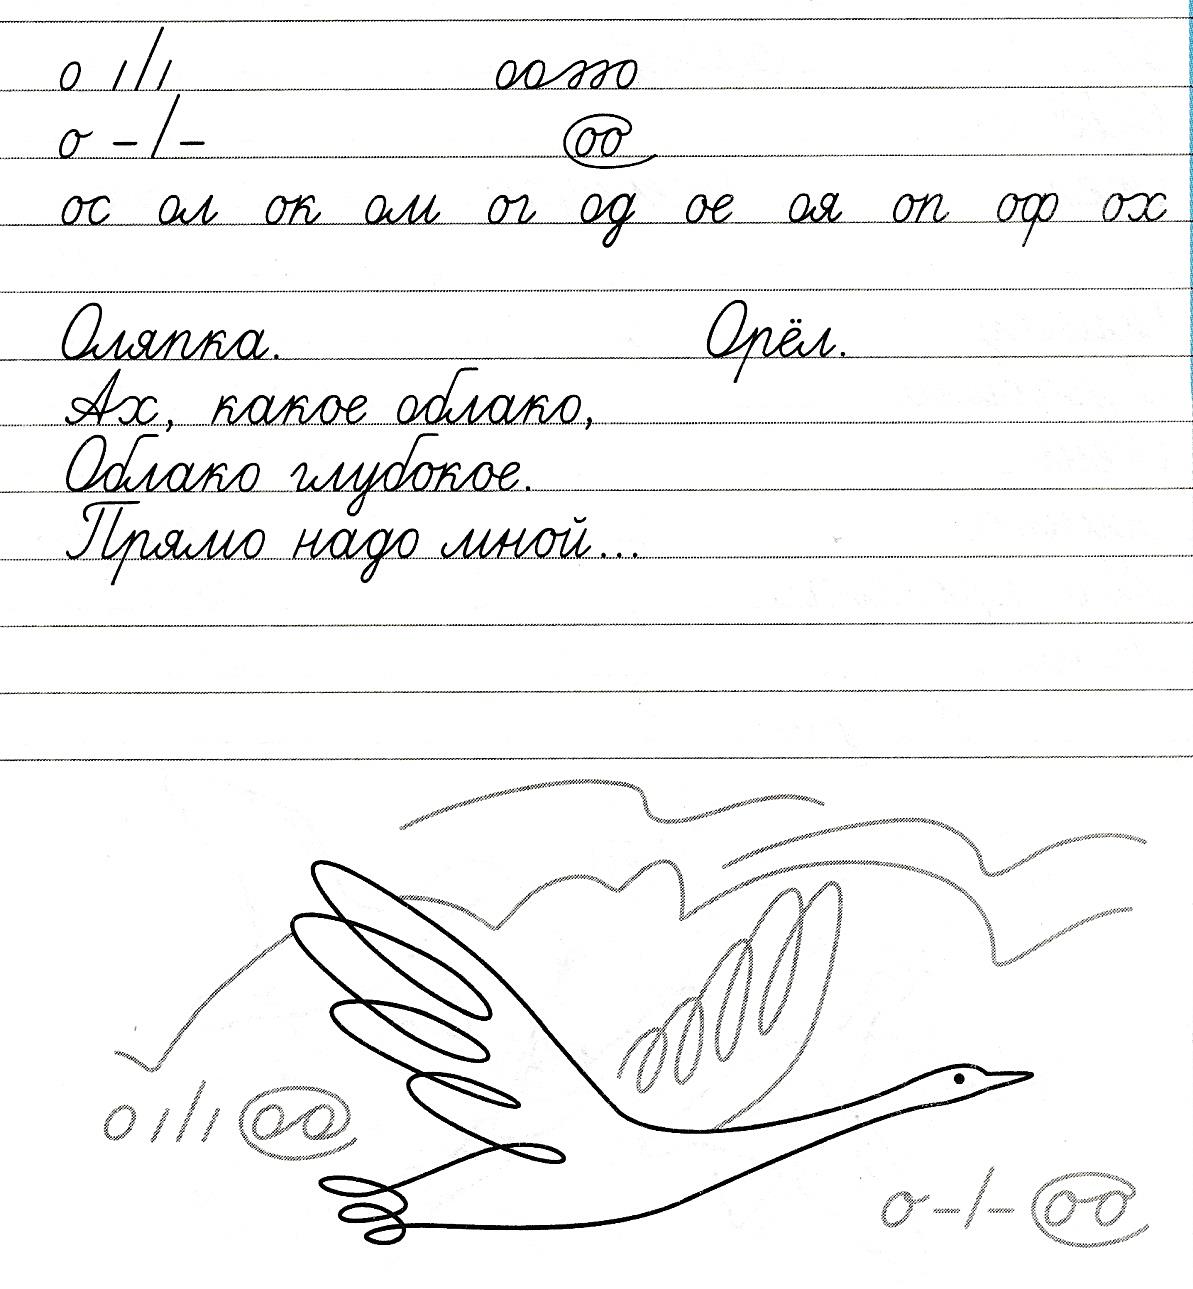 о ı/ı ооэээо
о -/- оо
ос ол ок ом ог од ое оя оп оф ох
Оляпка. Орёл.
Ах, какое облако,
Облако глубокое.
Прямо надо мной...
о ı/ı оо
о -/- оо